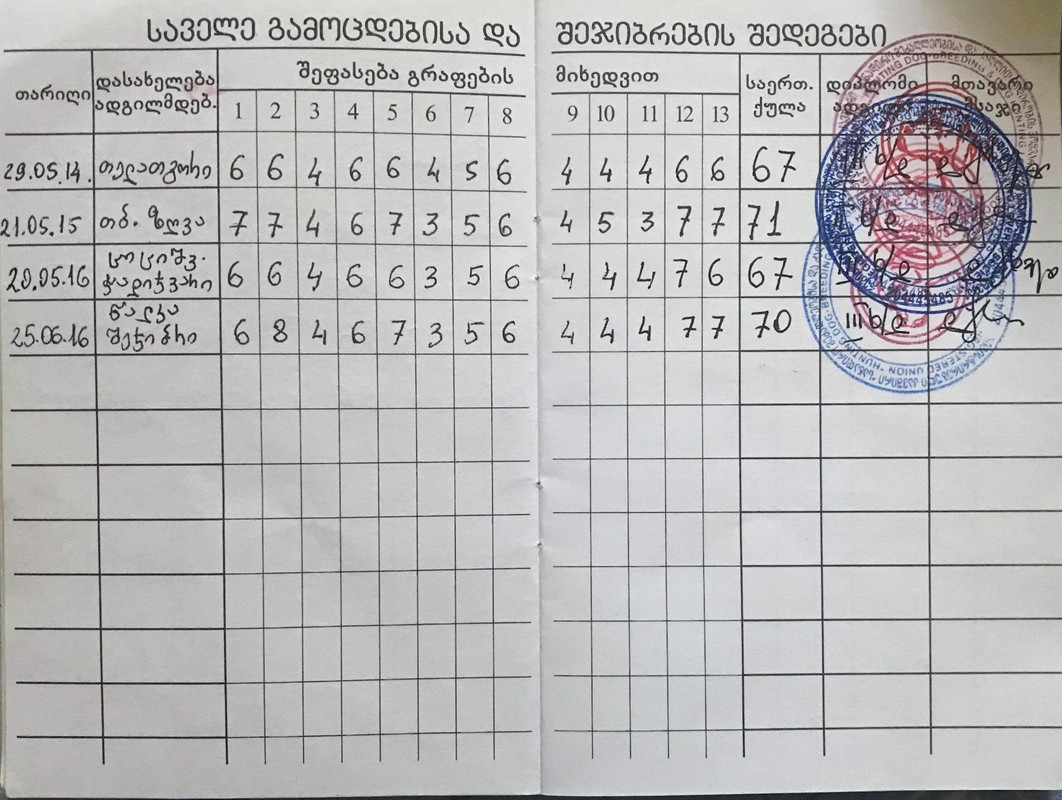 საველე გამოცდებისა და შეჯიბრების შედეგები
თარიღი დასახელება ადგილმდებ. შეფასება გრაფების მიხედვით საერთ. ქულა დიპლომი მთავარი მსაჯი
1 2 3 4 5 6 7 8 9 10 11 12 13
29.05.14. თელათგორი 6 6 4 6 6 4 5 6 4 4 4 6 6 67
21.05.15 თბ. ზღვა 7 7 4 6 7 3 5 6 4 5 3 7 7 71
20.05.16 6 6 4 6 6 3 5 6 4 4 4 7 6 67
25.06.16 წალკა შეჯიბრი 6 8 4 6 7 3 5 6 4 4 4 7 7 70 III